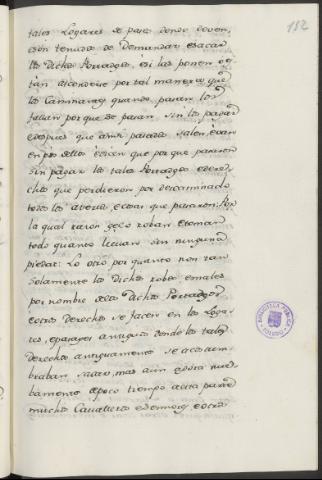 152
tales Logares de pasar donde deven,
e son tenudos de Demandar, e sacar
los dichos Portadgos, e si los ponen
tan alcordeite por tal manera que
los Caminantes quando pasan los
fallan por que se pasan sin los pagar
e despues que ansi pasados salen, e van
en pos dellos e dicen que por que pasaron
sin pagar los tales Portadgos e dere-
chos que perdieron por descaminado
todas las averias, e cosas que pasaron: Por
la qual razon gelo roban e toman
todo quanto lievan sin ninguna
piedad: Lo otro por quanto non tan
solamente los dichos robos e males
por nombre de los dichos Portadgos
e otros derechos se facen en los Loga-
res, e parages antiguos donde los tales
derechos antiguamente se acostum-
braban sacar, mas aun e doita nue-
bamente de poco tiempo acita parte
muchos Cavalleros e Señores e otras
BIBLIOTECA PUBLICA
TOLEDO